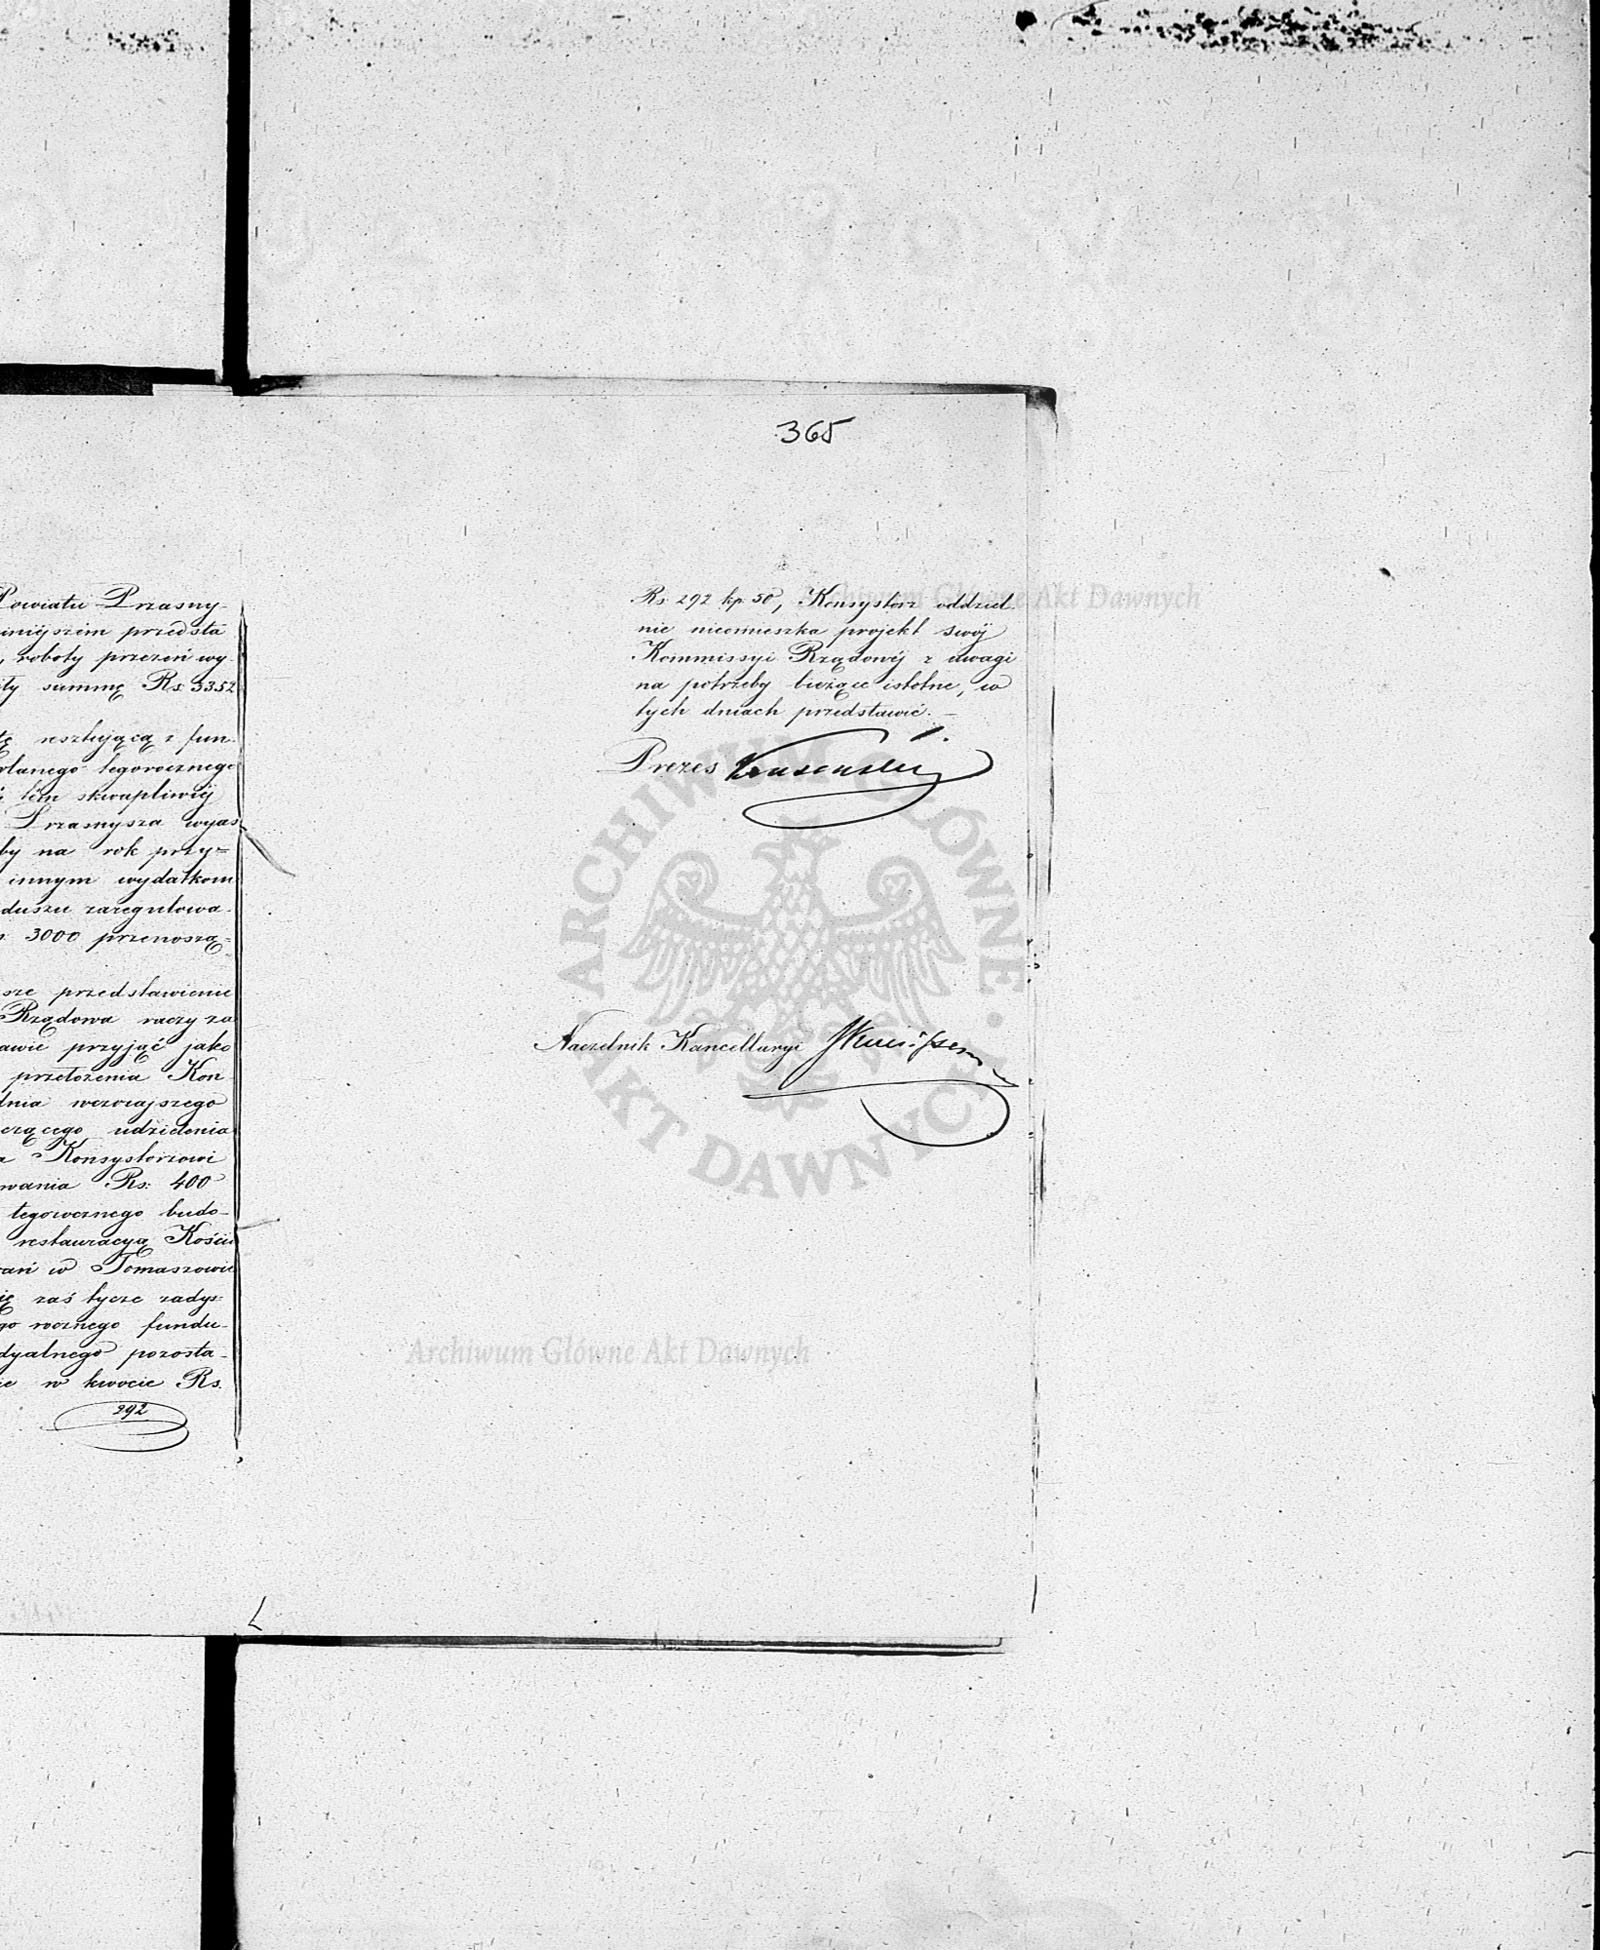 Powiatu Przasny-
przedsta
, roboty przezeń wy-
summę Rs. 3352
resztującą z fun-
tegorocznego
tém skwapliwiéj
Przasnysza wyas
by na rok przy=
innym wydatkom
duszu zaregulowa-
3000 przenoszą=
sze przedstawienie
Rządowa raczy za
przyjąć jako
przełożenia Kon-
dnia wczorajszego
udzielenia
Konsystorzowi
wania Rs: 400
tegorocznego budo-
restauracyą Kości
w Tomaszowie
zaś tycze zadys-
go rocznego fundu-
dyalnego pozosta-
w kwocie Rs.
292
365
Rs. 292 kp. 50, Konsystorz oddziel-
nie nieomieszka projekt swój
Kommissyi Rządowéj z uwagi
na potrzeby bieżące istotne, w
tych dniach przedstawić. –
Prezes
Naczelnik Kancellaryi
Archiwum Główne Akt Dawnych
ARCHIWUM GŁÓWNE
AKT DAWNYCH
Archiwum Główne Akt Dawnych